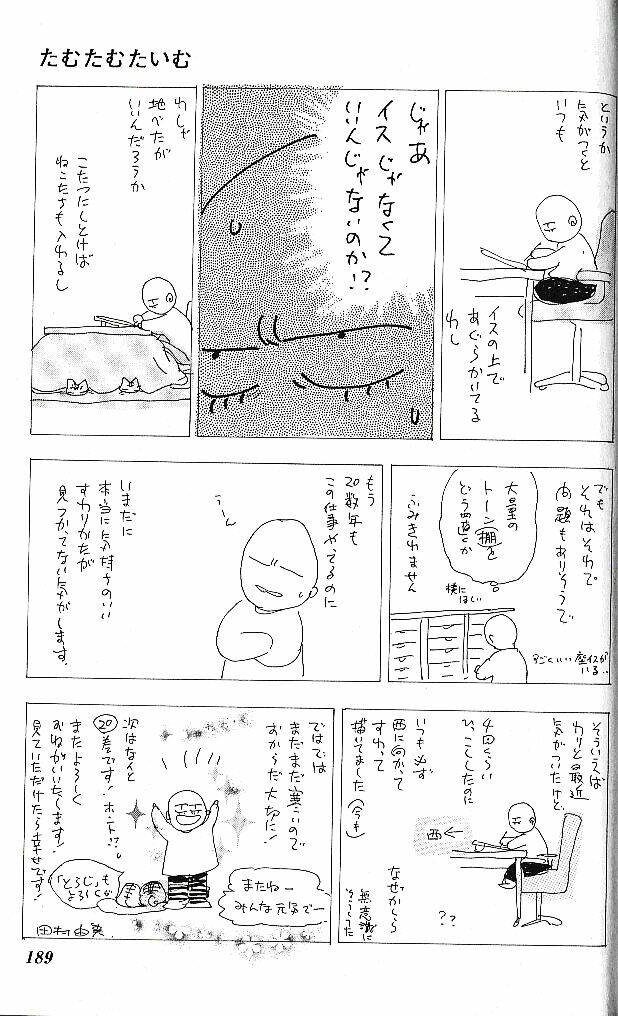 たむたむたいむ
というか
気がつくと
いつも
イスの上で
あぐらかいてる
わし
じゃあ
イスじゃなくて
いいんじゃないのか!?
わしゃ
地べたが
いいんだろうか
こたつにしとけば
ねこたちも入れるし
でも
それはそれで
問題もありそうで
大量の
トーン棚を
どう四畳とか
ふみきれません
横に
ほしい
すごくいい座イスが
いる‥
もう
20数年も
この仕事やってるのに
うーん
いまだに
本当に気持ちのいい
すわりかたが
見つかってない気がします.
そういえば
わりと最近
気がついたけど
4回くらい
ひっこしたのに
いつも必ず
西に向かって
すわって
描いてました(今も)
西←
なぜかしら
無意識に
そうしてた
??
ではでは
まだまだ寒いので
おからだ大切に!
次はなんと
20巻です!ホント!?
またよろしく
おねがいいたします!
見ていただけたら幸せです!
「とらじ」も
よろしくな
またねー
みんな元気でー
田村由美.
189